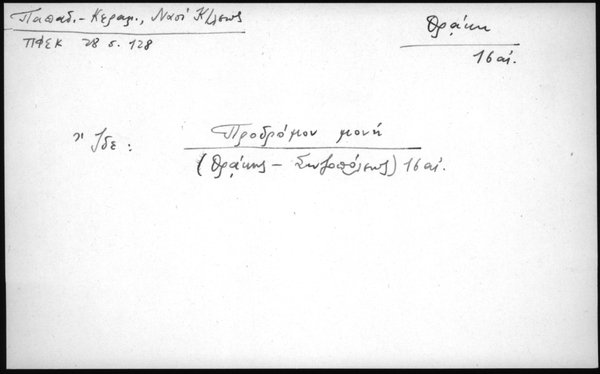 Παπαδ.-Κεραμ., Ναοί Κ/λεως
ΠΦΣΚ 28 σ. 128
Θράκη
16 αἰ.
Ἴδε :
Προδρόμου μονή
(Θράκης - Σωζοπόλεως) 16 αἰ.